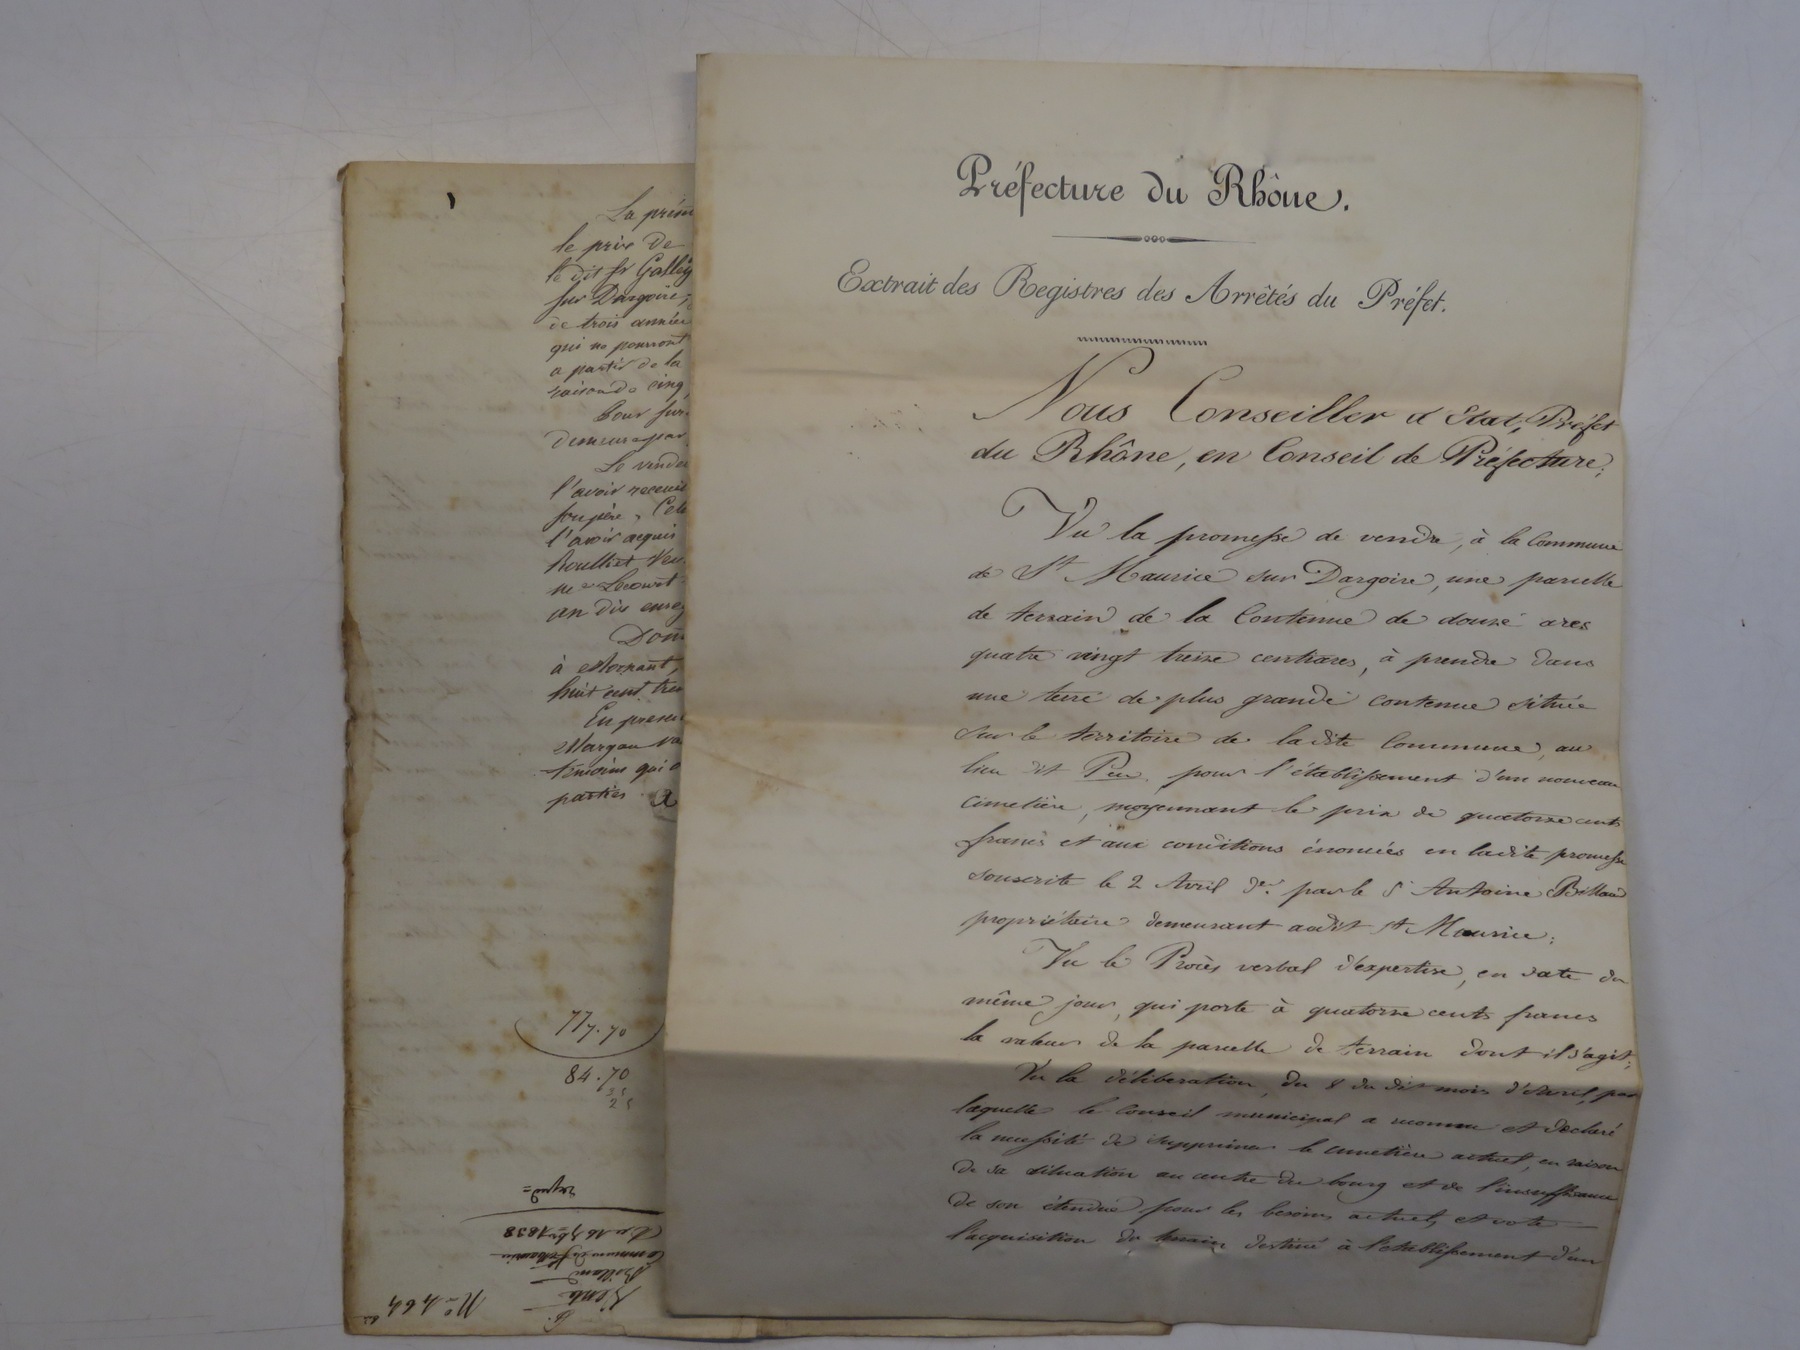 Préfecture du Rhône.
Extrait des Registres des Arrêtés du Préfet.
Nous Conseiller d'Etat, Préfet
du Rhône, en Conseil de Préfecture;
Vu la promesse de vendre, à la Commune
de St Maurice sur Dargoire, une parcelle
de terrain de la Contenue de douze ares
quatre vingt treize centiares, à prendre dans
une terre de plus grande contenue située
sur le territoire de ladite Commune, au
lieu dit Peu, pour l'établissement d'un nouveau
cimetière, moyennant le prix de quatorze cents
francs et aux conditions énoncées en ladite promesse
souscrite le 2 Avril der. par le S Antoine Billand
propriétaire demeurant audit St Maurice;
Vu le Procès verbal d'expertise, en date du
même jour, qui porte à quatorze cents francs
la valeur de la parcelle de terrain dont il s'agit;
Vu la délibération, du 8 du dit mois d'avril, par
laquelle le Conseil municipal a reconnu et déclaré
la nécessité de supprimer le cimetière actuel, en raison
de sa situation au centre du bourg et de l'insuffisance
de son étendue pour les besoins actuels, et voté
l'acquisition du terrain destiné à l'établissement d'un
La prés
le prix de
le dit Sr Galley
sur Dargoire,
de trois année
qui ne pourront
a partir de la
raison de cinq
Pour sur
demeure par
Le vende
l'avoir recueil
son père, Cel
l'avoir acquis
an dix enreg
Don
à Mornant,
huit cent tren
En presen
témoins qui o
parties
77.70
84.70
35
25
Nº 464
Vente
Billand
Commune de St Maurice
Du 16 7bre 1838